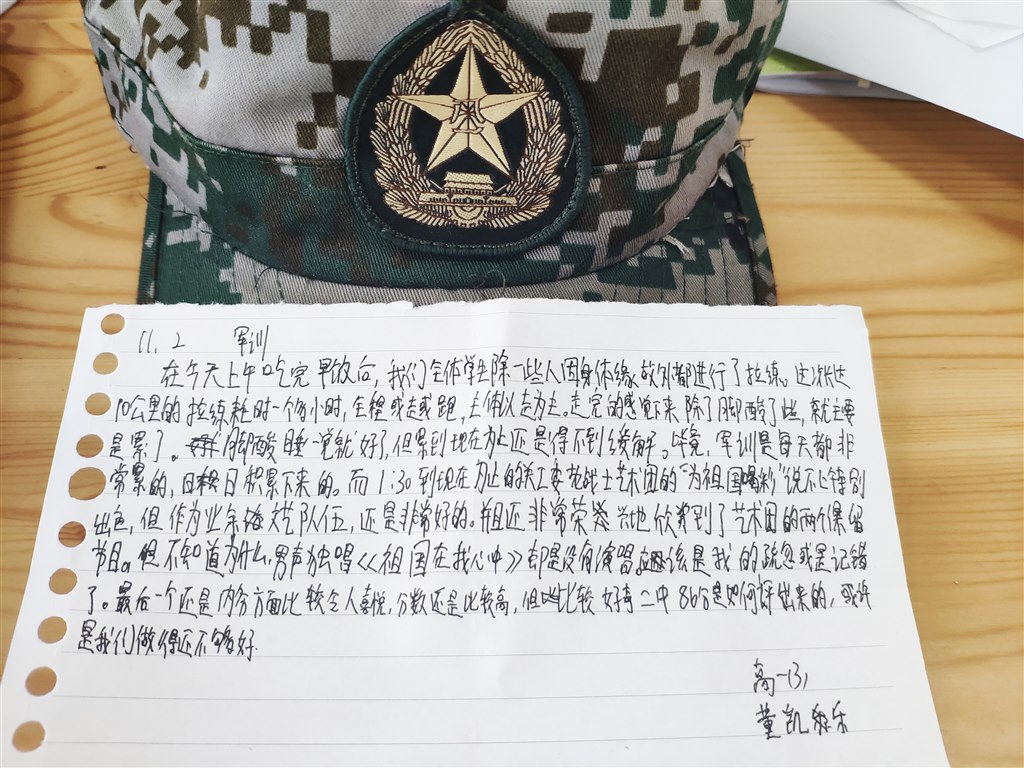 八一
11.2 军训
在今天上午吃完早饭后,我们全体学生除一些人因身体缘故外都进行了拉练。这次长达
10公里的拉练耗时一个多小时,全程或走或跑,主体以走为主。走完的感觉下来除了脚酸了些,就主要
是累了。脚酸睡一觉就好了,但累到现在为止还是得不到缓解。毕竟,军训是每天都非
常累的,日积累下来的。而1:30到现在为止的关工委老战士艺术团的“为祖国喝彩”说不上特别
出色,但作为业余文艺队伍,还是非常好的。并且还非常荣幸地欣赏到了艺术团的两个保留
节目。但不知道为什么男声独唱《祖国在我心中》却是没有演唱,应该是我的疏忽或是记错
了。最后一个还是内务方面比较令人喜悦,分数还是比较高,但比较好奇二中86分是如何评出来的,或许
是我们做得还不够好.
高一13)
董凯